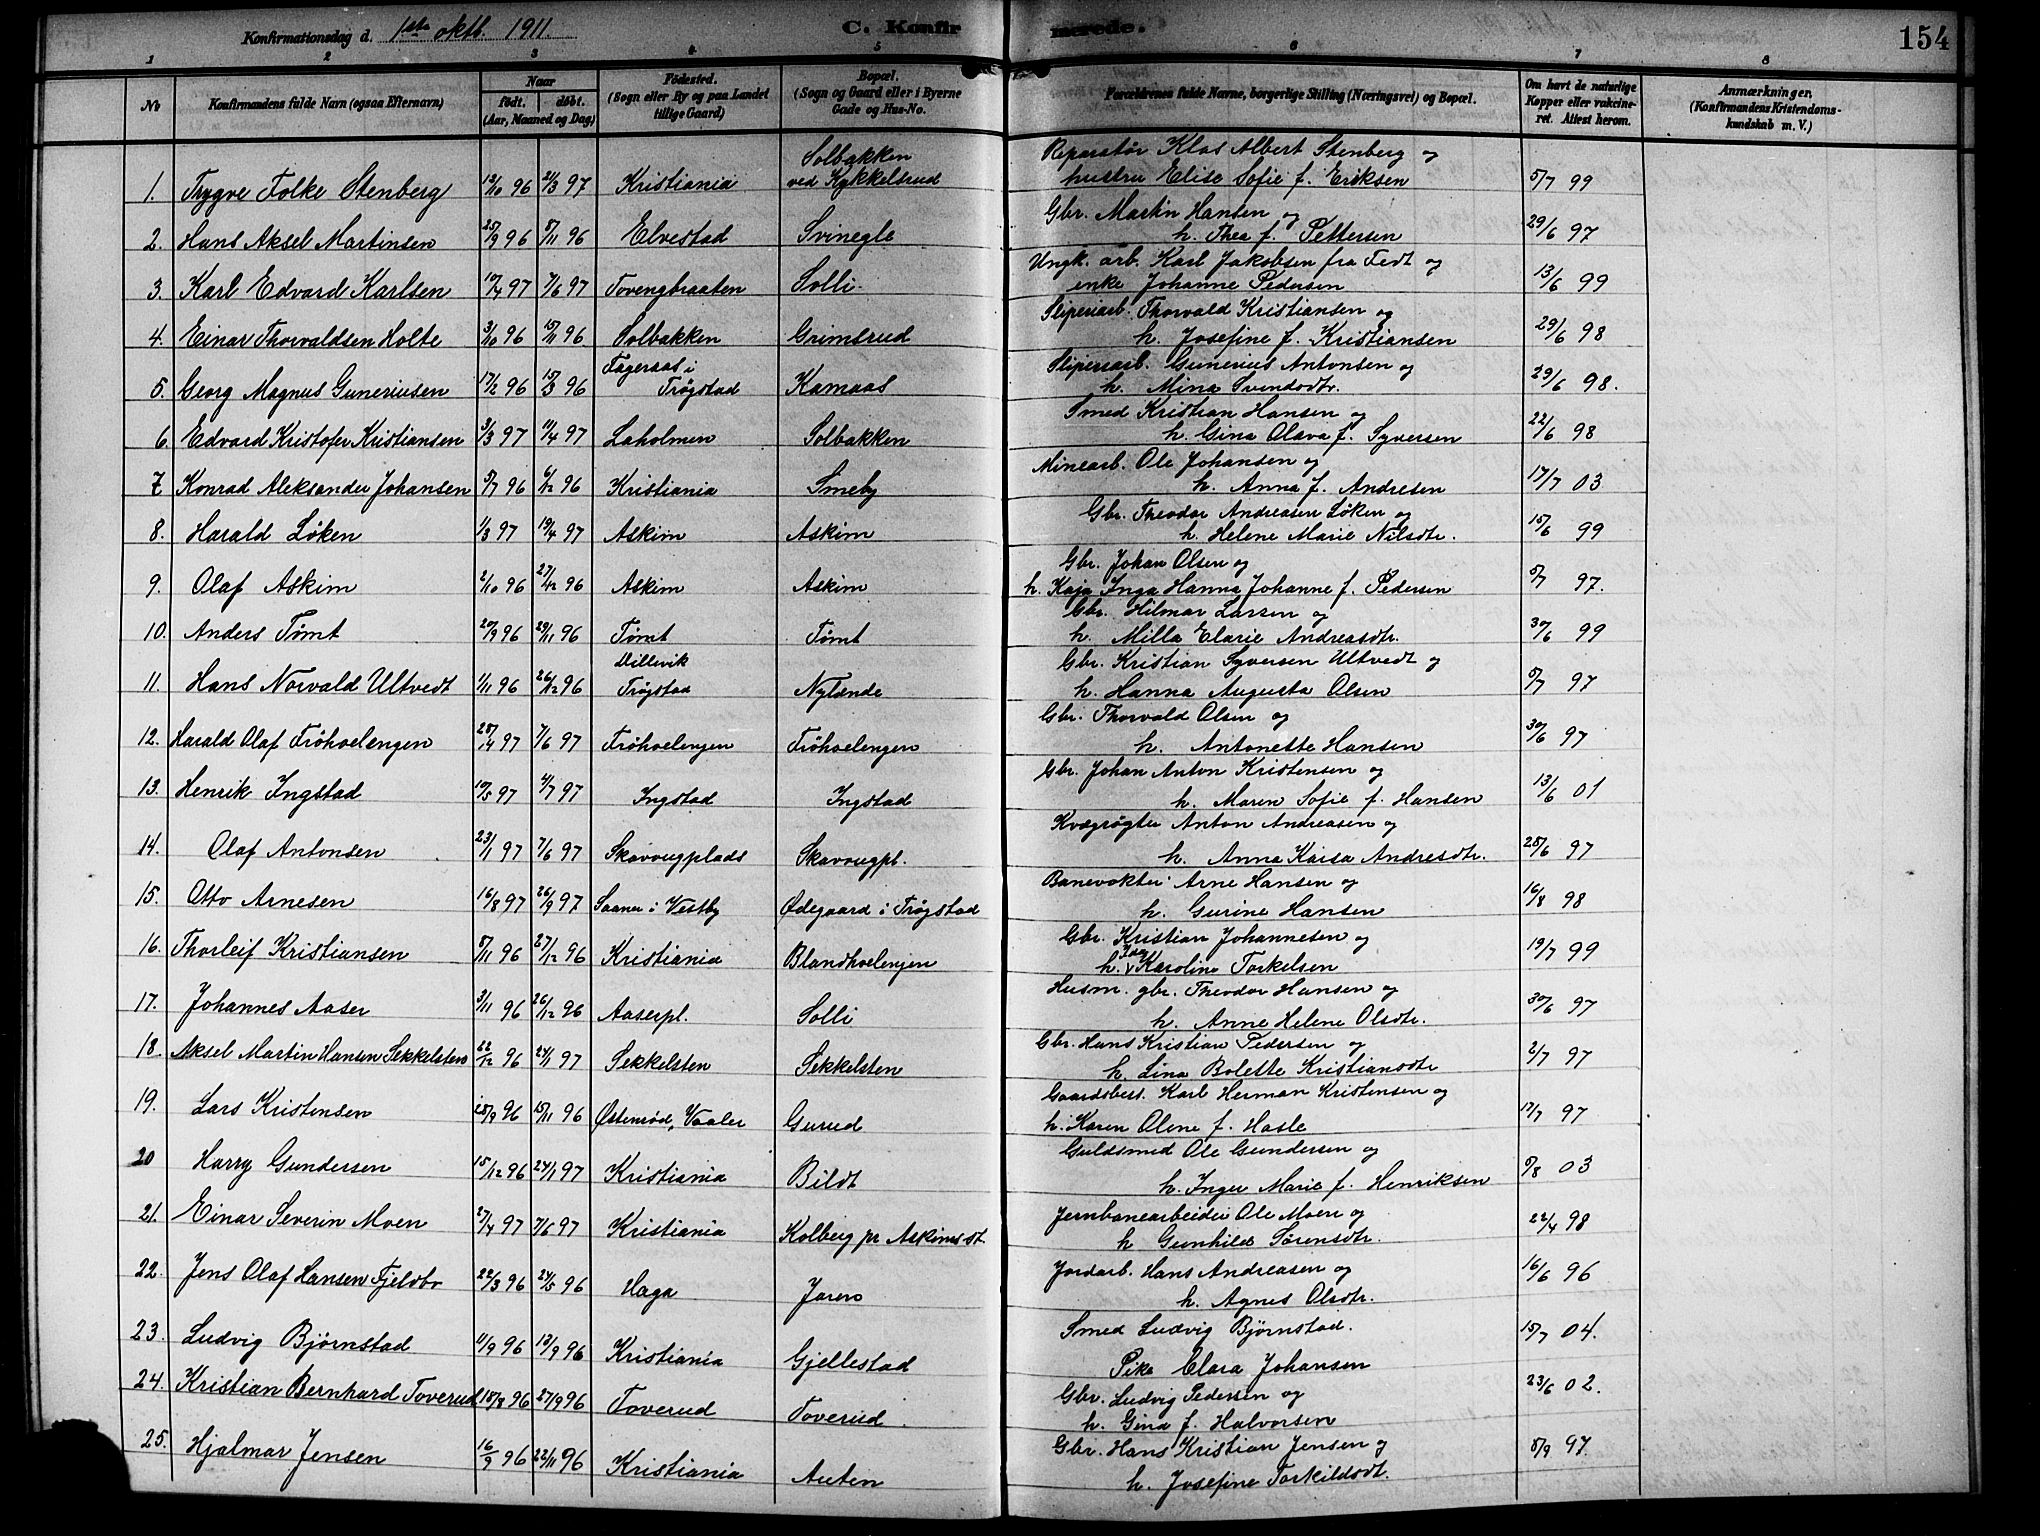 Konfirmationsdag d. 1ste oktb. 1911. C. Konfirmerede. 154
1 2 3 4 5 6 7 8
No Konfirmandens fulde Navn (ogsaa Efternavn) Naar født. døbt. (Aar, Maaned og Dag) Fødested. (Sogn eller By og paa Landet tillige Gaard) Bopæl. (Sogn og Gaard eller i Byerne Gade og Hus-No. Forældrenes fulde Navne, borgerlige Stilling (Næringsvei) og Bopæl. Om havt de naturlige Kopper eller vakcineret. Attest herom. Anmærkninger, (Konfirmandens Kristendomskundskab m. V.)
1. Trygve Folke Stenberg 12/10 96 21/3 97 Kristiania Solbakken ved Kykkelsrud Reparatør Klas Albert Stenberg og hustru Elise Sofie f. Eriksen 5/7 99
2. Hans Aksel Martinsen 25/9 96 8/11 96 Elvestad Svinegle Gbr. Martin Hansen og h. Thea f. Pettersen 29/6 97
3. Karl Edvard Karlsen 10/4 97 7/6 97 Tovengbraaten Solli Ungk. arb. Karl Jakobsen fra Fedt og enke Johanne Pedersen 13/6 99
4. Einar Thorvaldsen Holte 3/10 96 15/11 96 Solbakken Grimsrud Sliperiarb. Thorvald Kristiansen og h. Josefine f. Kristiansen 29/6 98
5. Georg Magnus Guneriusen 17/2 96 15/3 96 Fageraas i Trøgstad Kamaas Sliperiarb. Gunerius Antonsen og h. Mina Svendsdtr. 29/6 98.
6. Edvard Kristofer Kristiansen 3/3 97 11/4 97 Laholmen Solbakken Smed Kristian Hansen og h. Gina Olava f. Syversen 22/6 98
7 Konrad Aleksander Johansen 5/7 96 6/12 96 Kristiania Smeby Minearb. Ole Johansen og h. Anna f. Andresen 17/7 03
8. Harald Løken 1/3 97 19/4 97 Askim Askim Gbr. Theodor Andreasen Løken og h. Helene Marie Nilsdtr. 15/6 99
9. Olaf Askim 2/10 96 27/12 96 Askim Askim Gbr. Johan Olsen og h. Kaja Inga Hanna Johanne f. Pedersen 5/7 97.
10. Anders Tømt 20/9 96 29/11 96 Tømt Tømt Gbr. Hilmar Larsen og h. Milla Elarie Andreasdtr. 30/6 99
11. Hans Norvald Ultvedt 1/11 96 26/12 96 Dillevik Trøgstad Nylænde Gbr. Kristian Syversen Ultvedt og h. Hanna Augusta Olsen 5/7 97
12. Harald Olaf Frøhvelengen 25/4 97 7/6 97 Frøhvelengen Frøhvelengen Gbr. Thorvald Olsen og h. Antonette Hansen 30/6 97
13. Henrik Ingstad 10/5 97 4/7 97 Ingstad Ingstad Gbr. Johan Anton Kristensen og h. Maren Sofie f. Hansen 13/6 01
14. Olaf Antonsen 23/1 97 7/6 97 Skavougplads Skavougpl. Kvægrøgter Anton Andreasen og h. Anna Kaisa Andresdtr. 28/6 97
15. Otto Arnesen 16/8 97 26/9 97 Saaner i Vestby Ødegaard i Trøgstad Banevokter Arne Hansen og h. Gurine Hansen 16/8 98
16. Thorleif Kristiansen 5/11 96 27/12 96 Kristiania Blandhvelengen Gbr. Kristian Johannesen og h. Ida Karoline Torkelsen 19/7 99
17. Johannes Aaser 3/11 96 26/12 96 Aaserpl. Solli Husm. gbr. Theodor Hansen og h. Anne Helene Olsdtr. 30/6 97
18. Aksel Martin Hansen Sekkelsten 22/12 96 24/1 97 Sekkelsten Sekkelsten Gbr. Hans Kristian Pedersen og h. Lina Bolette Kristiansdtr 2/7 97
19. Lars Kristensen 28/9 96 15/11 96 Østenrød, Vaaler Gurud Gaardsbest. Karl Herman Kristensen og h. Karen Olene f. Hasle 17/7 97
20 Harry Gundersen 15/12 96 24/1 97 Kristiania Bildt Guldsmed Ole Gundersen og h. Inger Marie f. Henriksen 5/8 03
21. Einar Severin Moen 27/4 97 7/6 97 Kristiania Kolberg pr Askim st. Jernbanearbeider Ole Moen og h Gunhild Sørensdtr. 22/4 98
22. Jens Olaf Hansen Fjeldbo 22/3 96 24/5 96 Haga Jaren Jordarb. Hans Andreasen og h. Agnes Olsdtr. 16/6 96
23. Ludvig Bjørnstad 11/9 96 13/9 96 Kristiania Gjellestad Smed Ludvig Bjørnstad. Pike Clara Johansen 15/7 04.
24. Kristian Bernhard Toverud 18/8 96 27/9 96 Toverud Toverud. Gbr. Ludvig Pedersen og h. Gina f. Halvorsen 23/6 02.
25. Hjalmar Jensen 16/9 96 22/11 96 Kristiania Auten Gbr. Hans Kristian Jensen og h. Josefine Torkildsdt. 8/9 97.